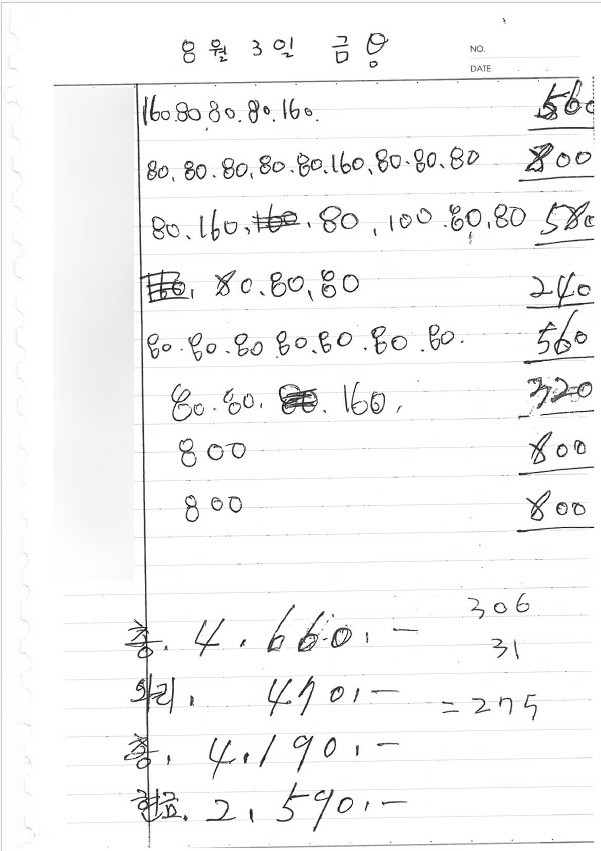 8월 3일 금용
NO.
DATE
160.80.80.80.160. 560
80.80.80.80.80.160.80.80.80 800
80.160.160.80.100.80.80 580
160.80.80.80 240
80.80.80.80.80.80.80. 560
80.80.80.160. 320
800 800
800 800
총. 4.660.- 306
31
외리. 470.- =275
총. 4.190.-
현금. 2.590.-